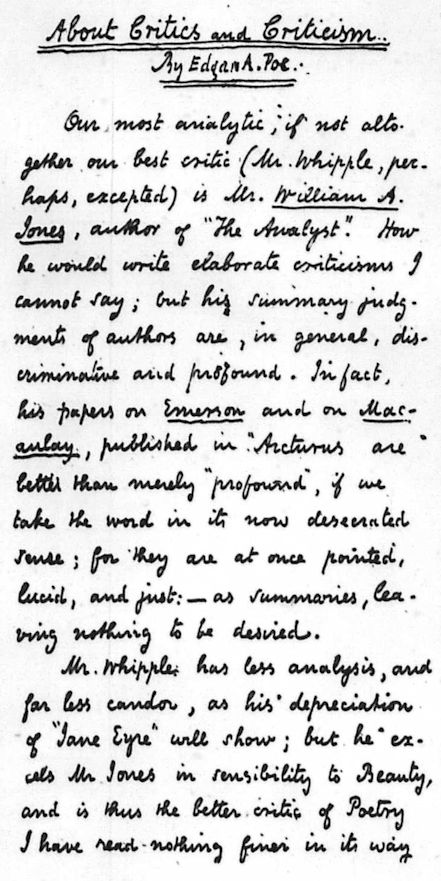 About Critics and Criticism.
By Edgar A. Poe.
Our most analytic, if not alto-
gether our best critic (Mr. Whipple, per-
haps, excepted) is Mr. William A.
Jones, author of "The Analyst". How
he would write elaborate criticisms I
cannot say; but his summary judg-
ments of authors are, in general, dis-
criminative and profound. In fact,
his papers on Emerson and on Mac-
aulay, published in "Arcturus" are
better than merely "profound", if we
take the word in its now desecrated
sense; for they are at once pointed,
lucid, and just: — as summaries, lea-
ving nothing to be desired.
Mr. Whipple has less analysis, and
far less candor, as his depreciation
of "Jane Eyre" will show; but he ex-
cels Mr Jones in sensibility to Beauty,
and is thus the better critic of Poetry
I have read nothing finer in its way